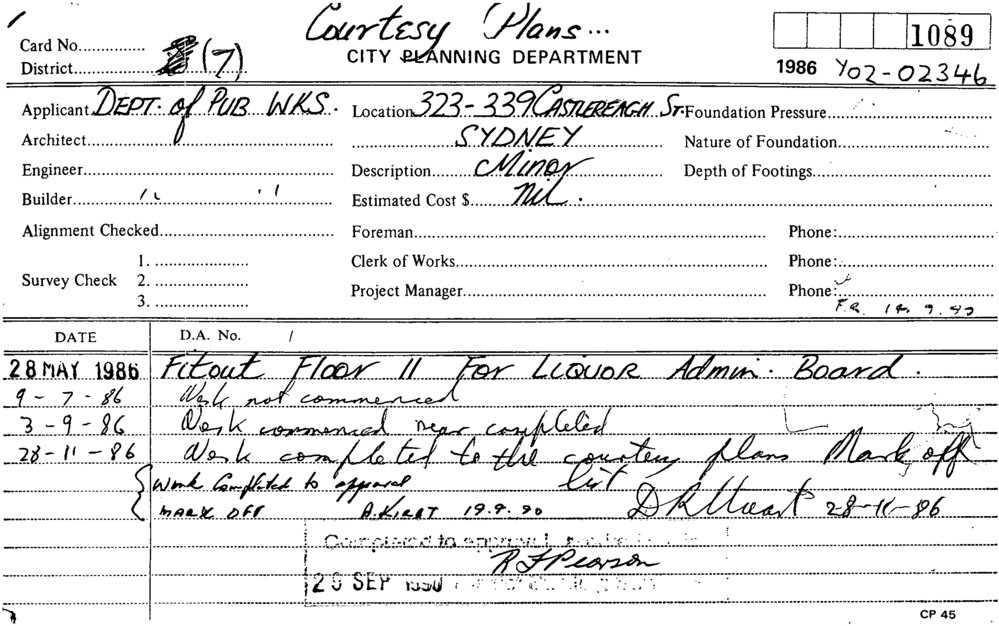 Courtesy Plans...
CITY PLANNING DEPARTMENT
Card No.
District (7)
1089
1986 Y02-02346
Applicant DEPT. of PUB WKS. Location 323-339 CASTLEREAGH ST. Foundation Pressure
Architect SYDNEY Nature of Foundation
Engineer Description Minor Depth of Footings
Builder " " Estimated Cost $ Nil.
Alignment Checked Foreman Phone:
Survey Check 1. Clerk of Works Phone:
2.
3. Project Manager Phone:
DATE D.A. No. /
28 MAY 1986 Fitout Floor 11 For LIQUOR Admin. Board.
9-7-86 Work not commenced
3-9-86 Work commenced near completed
28-11-86 Work completed to the courtesy plans Mark off
list
Work Completed to approval
MARK OFF A. KIRBT 19.9.90 28-11-86
Completed to approval
R F Pearson
SEP 1990
CP 45